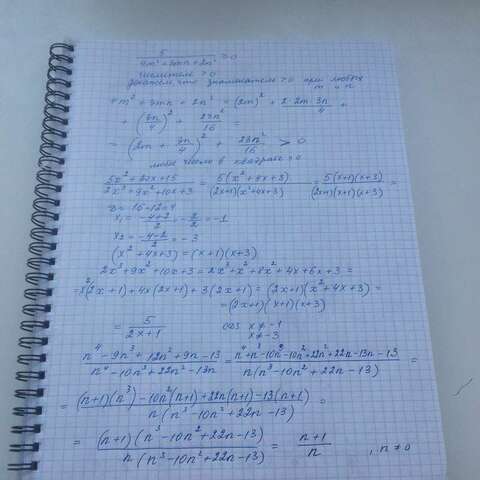 5/(4m² + 3mn + 2n²) > 0
числитель > 0
докажем, что знаменатель > 0 при любых m и n
4m² + 3mn + 2n² = (2m)² + 2·2m·3n/4 +
+ (3n/4)² + 23n²/16 =
= (2m + 3n/4)² + 23n²/16 > 0
любое число в квадрате > 0
(5x² + 20x + 15)/(2x³ + 9x² + 10x + 3) = 5(x² + 4x + 3)/((2x+1)(x² + 4x + 3)) = 5(x+1)(x+3)/((2x+1)(x+1)(x+3)) =
D = 16 - 12 = 4
x₁ = (-4+2)/2 = -2/2 = -1
x₂ = (-4-2)/2 = -3
(x² + 4x + 3) = (x+1)(x+3)
2x³ + 9x² + 10x + 3 = 2x³ + x² + 8x² + 4x + 6x + 3 =
= x²(2x+1) + 4x(2x+1) + 3(2x+1) = (2x+1)(x² + 4x + 3) =
= (2x+1)(x+1)(x+3)
= 5/(2x+1) x ≠ -1
x ≠ -3
(n⁴ - 9n³ + 12n² + 9n - 13)/(n⁴ - 10n³ + 22n² - 13n) = (n⁴ + n³ - 10n³ - 10n² + 22n² + 22n - 13n - 13)/(n(n³ - 10n² + 22n - 13)) =
= ((n+1)(n³) - 10n²(n+1) + 22n(n+1) - 13(n+1))/(n(n³ - 10n² + 22n - 13)) =
= (n+1)(n³ - 10n² + 22n - 13)/(n(n³ - 10n² + 22n - 13)) = (n+1)/n , n ≠ 0